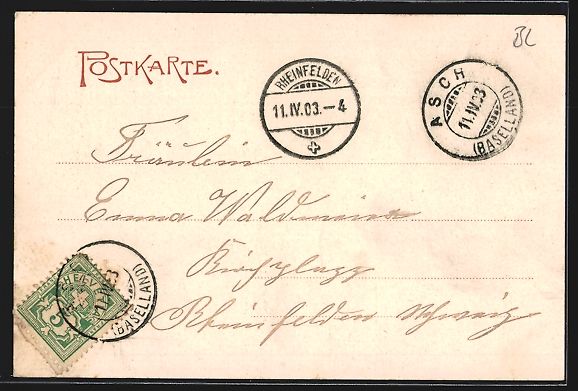 BL
POSTKARTE.
RHEINFELDEN
11.IV.03.–4
ASCH
11.IV.03
(BASELLAND)
Fräulein
Emma Waldmeier
Kirchplatz
Rheinfelden Schweiz
5
(BASELLAND)